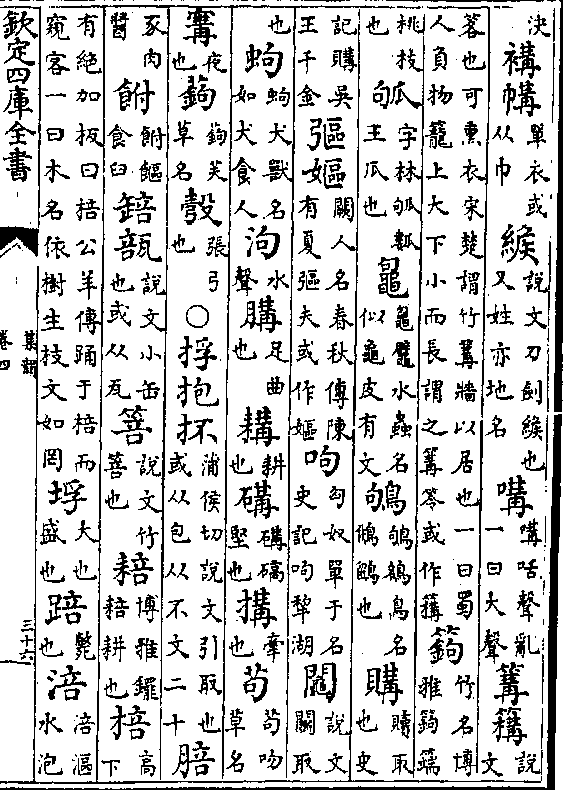 決褠㡚單衣或从巾緱說文刀劍緱也又姓亦地名㗕㗕咶聲亂一曰大聲篝簼說文
笿也可熏衣宋楚謂竹篝牆以居也一曰蜀人負物籠上大下小而長謂之篝笭或作簼䈮竹名博雅䈮䉡
桃枝也㽛字林㽛瓤王瓜也𪚺龜鼊水蟲名似龜皮有文鴝鴝鵅鳥名鵂鶹也購贖取也史
記購吳王千金彄嫗闕人名春秋傳陳有夏彄夫或作嫗呴匈奴單于名史記呴犂湖䦰說文闕取
也蚼蚼犬獸名如犬食人泃水聲䠓足曲也耩耕也磝磝碻堅也搆牽也苟苟吻草名
㝤夜也蒟蒟芺草名彀張弓也○捊抱抔蒲侯切說文引取也或从包从不文二十䏽
豕肉醬䬏䬏饇食臼䍌瓿說文小缶也或从瓦䈏說文竹䈏也䎧博雅䥯䎧耕也棓高下
有絕加板曰棓公羊傳踊于棓而窺客一曰木名依樹生枝文如罔垺大也盛也踣斃也涪涪漚水泡
欽定四庫全書
集韻
卷四
三十六